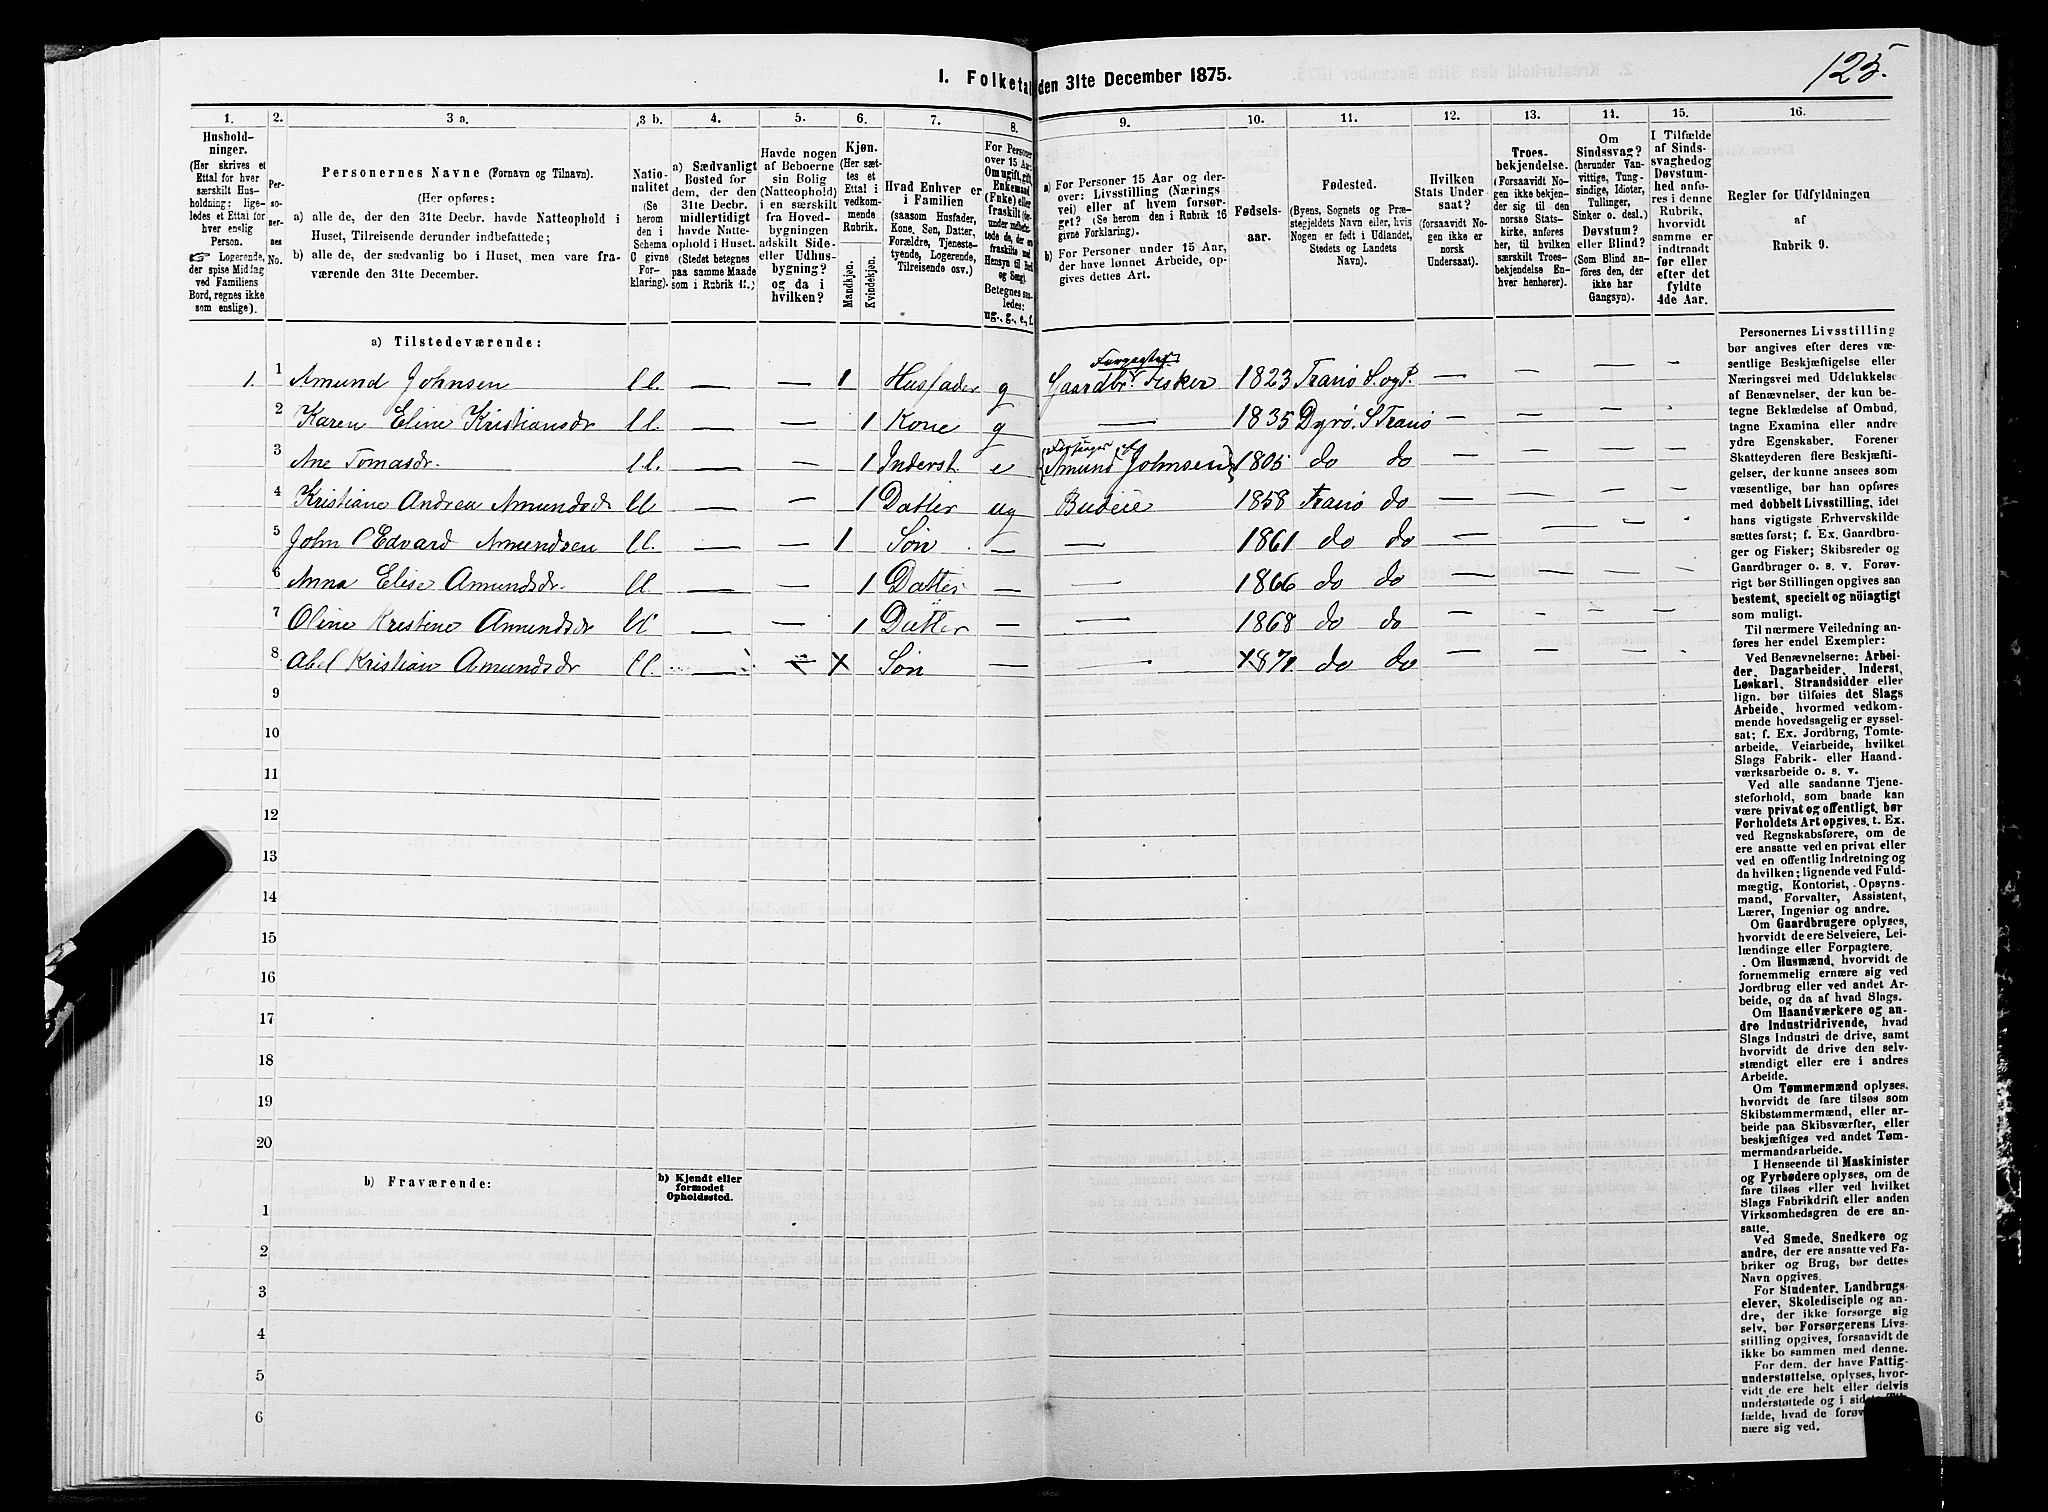 125.
1. Folketal den 31te December 1875.
1. 2. 3 a. 3 b. 4. 5. 6. 7. 8. 9. 10. 11. 12. 13. 14. 15. 16.
Hushold-
ninger.
(Her skrives et
Ettal for hver
særskilt Hus-
holdning; lige-
ledes et Ettal for
hver enslig
Person.
☞ Logerende,
der spise Middag
ved Familiens
Bord, regnes ikke
som enslige).
Per-
so-
ner-
nes
No.
Personernes Navne (Fornavn og Tilnavn).
(Her opføres:
a) alle de, der den 31te Decbr. havde Natteophold i
Huset, Tilreisende derunder indbefattede;
b) alle de, der sædvanlig bo i Huset, men vare fra-
værende den 31te December.
Natio-
nalitet
(Se
herom
den i
Schema
C givne
For-
klaring).
a) Sædvanligt
Bosted for
dem, der den
31te Decbr.
midlertidigt
havde Natte-
ophold i Huset.
(Stedet betegnes
paa samme Maade
som i Rubrik 11.)
Havde nogen
af Beboerne
sin Bolig
(Natteophold)
i en særskilt
fra Hoved-
bygningen
adskilt Side-
eller Udhus-
bygning?
og da i
hvilken?
Kjøn.
(Her sæt-
tes et
Ettal i
vedkom-
mende
Rubrik.
Mandkjøn.
Kvindekjøn.
Hvad Enhver er
i Familien
(saasom Husfader,
Kone, Søn, Datter,
Forældre, Tjeneste-
tyende, Logerende,
Tilreisende osv.)
For Personer
over 15 Aar:
Om ugift, gift,
Enkemand
(Enke) eller
fraskilt
Hensyn til Bord
og Seng).
Betegnes saa-
ledes:
ug., g., e., f.
a) For Personer 15 Aar og der-
over: Livsstilling (Nærings
vei) eller af hvem forsør-
get? (Se herom den i Rubrik 16
givne Forklaring).
b) For Personer under 15 Aar,
der have lønnet Arbeide, op-
gives dettes Art.
Fødsels-
aar.
Fødested.
(Byens, Sognets og Præ-
stegjeldets Navn eller, hvis
Nogen er født i Udlandet,
Stedets og Landets
Navn).
Hvilken
Stats Under-
saat?
(forsaavidt No-
gen ikke er
norsk
Undersaat).
Troes-
bekjendelse.
(Forsaavidt No-
gen ikke bekjen-
der sig til den
norske Stats-
kirke, anføres
her, til hvilken
særskilt Troes-
bekjendelse En-
hver henhører).
Om
Sindssvag?
(herunder Van-
vittige, Tung-
sindige, Idioter,
Tullinger,
Sinker o. desl.)
Døvstum?
eller Blind?
(Som Blind an-
føres den, der
ikke har
Gangsyn).
I Tilfælde
af Sinds-
svaghedog
Døvstum-
hed anfø-
res i denne
Rubrik,
hvorvidt
samme er
indtraadt
før eller
efter det
fyldte
4de Aar.
Regler for Udfyldningen
af
Rubrik 9.
a) Tilstedeværende:
Forpagter
1. 1 Amund Johnsen ll. — — 1 Husfader g Gaardbr. Fisker 1823 Tranø S. og P. — — — -
2 Karen Eline Kristiansdr ll. — — 1 Kone g — 1835 Dyrø. S Tranø — — — -
3 Ane Tomasdr. ll. — — 1 Inderst e Amund Johnsen 1805 do do — — — -
4 Kristiane Andrea Amundsdr ll — — 1 Datter ug Budeie 1858 Tranø do — — — -
5 John Edvard Amundsen ll. — — 1 Søn — — 1861 do do — — — -
6 Anna Elise Amundsdr. ll. — — 1 Datter — — 1866 do do — — — -
7 Oline Kristine Amundsdr ll — — 1 Datter — — 1868 do do — — — -
8 Abel Kristian Amundsdr ll. — — X Søn — — 1871 do do — — — -
9
10
11
12
13
14
15
16
17
18
19
20
b) Fraværende:
b) Kjendt eller
formodet
Opholdssted.
1
2
3
4
5
6
Personernes Livsstilling
bør angives efter deres væ-
sentlige Beskjæftigelse eller
Næringsvei med Udelukkelse
af Benævnelser, der kun be-
tegne Beklædelse af Ombud,
tagne Examina eller andre
ydre Egenskaber. Forener
Skatteyderen flere Beskjæfti-
gelser, der kunne ansees som
væsentlige, bør han opføres
med dobbelt Livsstilling, idet
hans vigtigste Erhvervskilde
sættes først; f. Ex. Gaardbru-
ger og Fisker; Skibsreder og
Gaardbruger o. s. v. Forøv-
rigt bør Stillingen opgives saa
bestemt, specielt og nöiagtigt
som muligt.
Til nærmere Veiledning an-
føres her endel Exempler:
Ved Benævnelserne: Arbei-
der, Dagarbeider, Inderst,
Løskarl, Strandsidder eller
lign. bør tilføies det Slags
Arbeide, hvormed vedkom-
mende hovedsagelig er syssel-
sat; f. Ex. Jordbrug, Tomte-
arbeide, Veiarbeide, hvilket
Slags Fabrik- eller Haand-
værksarbeide o. s. v.
Ved alle saadanne Tjene-
steforhold, som baade kan
være privat og offentligt, bør
Forholdets Art opgives, t. Ex.
ved Regnskabsførere, om de
ere ansatte ved en privat eller
ved en offentlig Indretning og
da hvilken; lignende ved Fuld-
mægtig, Kontorist, Opsyns-
mand, Forvalter, Assistent,
Lærer, Ingeniør og andre.
Om Gaardbrugere oplyses,
hvorvidt de ere Selveiere, Lei-
lændinge eller Forpagtere.
Om Husmænd, hvorvidt de
fornemmelig ernære sig ved
Jordbrug eller ved andet Ar-
beide, og da af hvad Slags.
Om Haandværkere og an-
dre Industridrivende, hvad
Slags Industri de drive, samt
hvorvidt de drive den selv-
stændigt eller ere i andres
Arbeide.
Om Tømmermænd oplyses,
hvorvidt de fare tilsøs som
Skibstømmermænd, eller ar-
beide paa Skibsværfter, eller
beskjæftiges ved andet Tøm-
mermandsarbeide.
I Henseende til Maskinister
og Fyrbødere oplyses, om de
fare tilsøs eller ved hvilket
Slags Fabrikdrift eller anden
Virksomhedsgren de ere an-
satte.
Ved Smede, Snedkere og
andre, der ere ansatte ved Fa-
briker og Brug, bør dettes
Navn opgives.
For Studenter, Landbrugs-
elever, Skoledisciple og an-
dre, der ikke forsørge sig
selv, bør Forsørgerens Livs-
stilling opgives, forsaavidt de
ikke bo sammen med denne.
For dem, der have Fattig-
understøttelse, oplyses, hvor-
vidt de ere helt eller delvis
understøttede og i sidste Til-
fælde, hvad de forøv
nære sig ved.